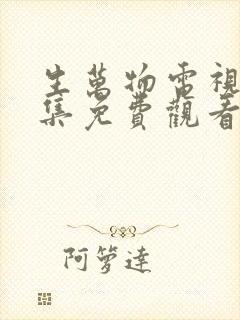 生萬物電視
集免費觀看
阿箩達